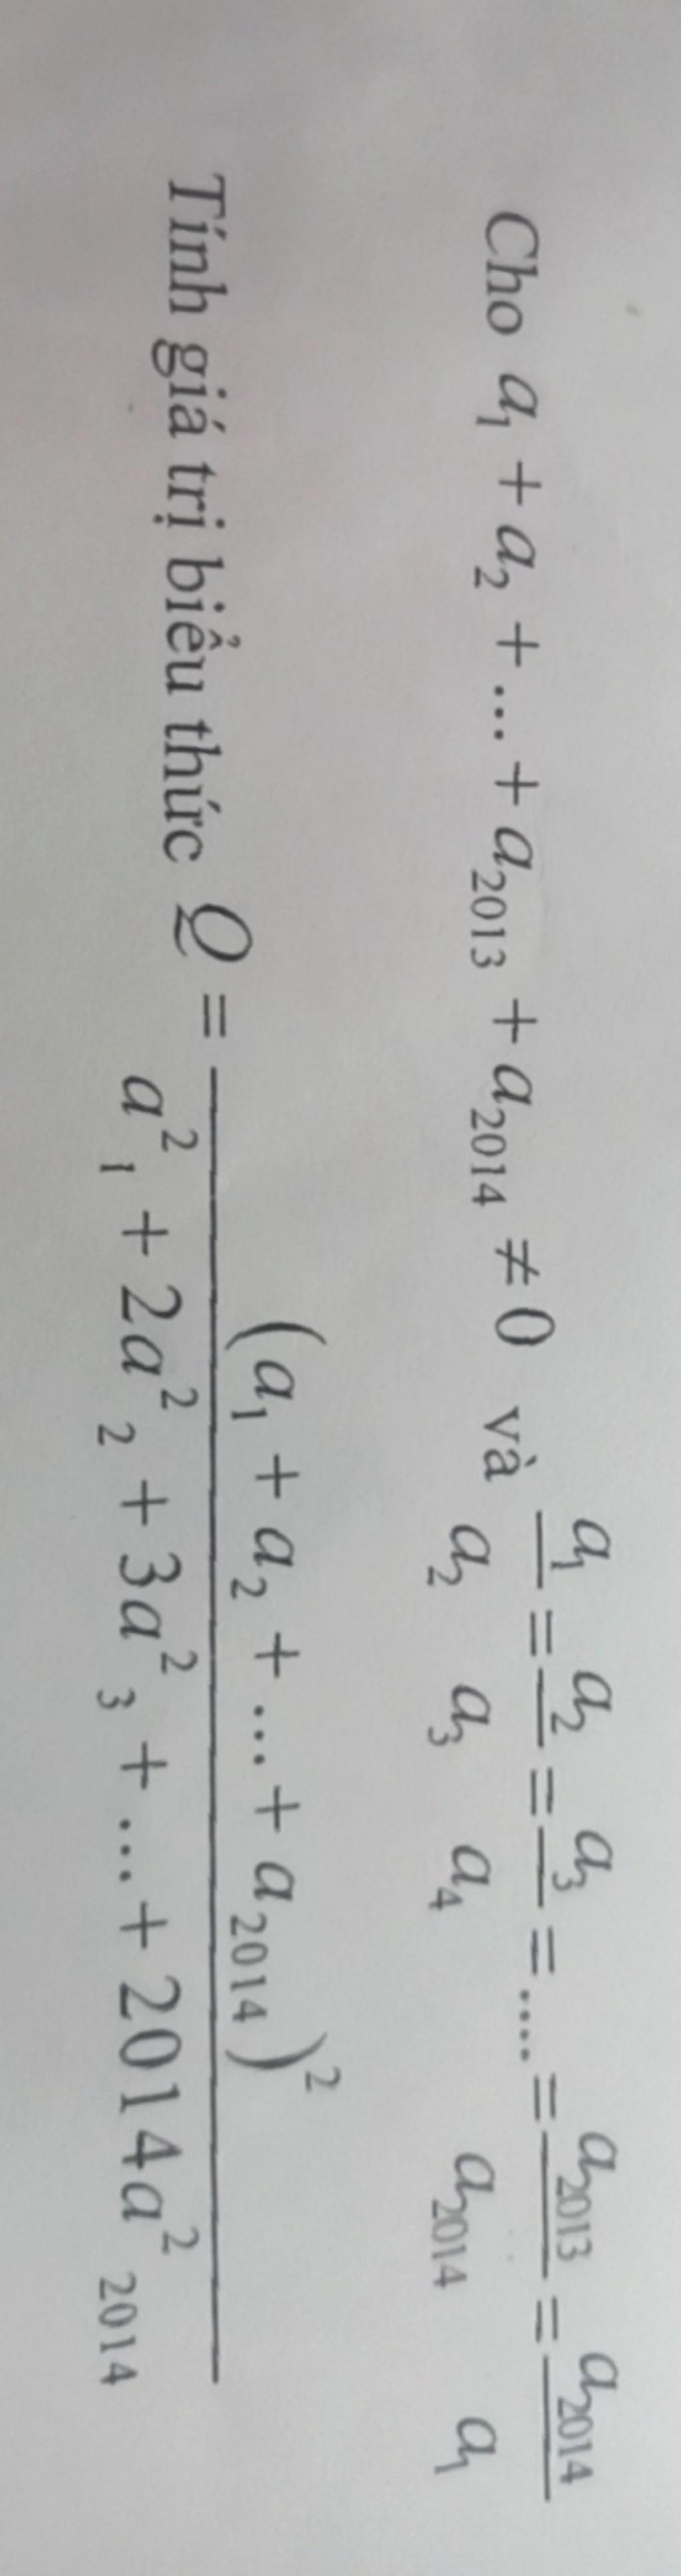 Cho a₁ + a₂ + ... + a₂₀₁₃ + a₂₀₁₄ ≠ 0 và a₁/a₂ = a₂/a₃ = a₃/a₄ = .... = a₂₀₁₃/a₂₀₁₄ = a₂₀₁₄/a₁
Tính giá trị biểu thức Q = (a₁ + a₂ + ... + a₂₀₁₄)² / (a²₁ + 2a²₂ + 3a²₃ + ... + 2014a²₂₀₁₄)